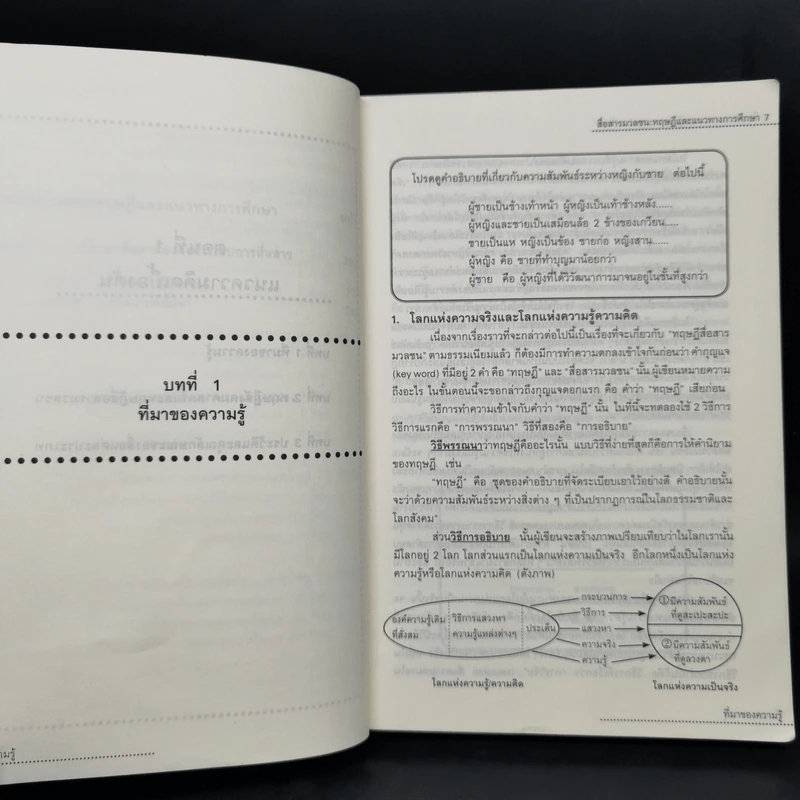 บทที่ 1
ที่มาของความรู้
สื่อสารมวลชน:ทฤษฎีและแนวทางการศึกษา 7
โปรดดูคำอธิบายที่เกี่ยวกับความสัมพันธ์ระหว่างหญิงกับชาย ต่อไปนี้
ผู้ชายเป็นช้างเท้าหน้า ผู้หญิงเป็นเท้าช้างหลัง......
ผู้หญิงและชายเป็นเสมือนล้อ 2 ข้างของเกวียน.....
ชายเป็นแห หญิงเป็นข้อง ชายก่อ หญิงสาน......
ผู้หญิง คือ ชายที่ทำบุญมาน้อยกว่า
ผู้ชาย คือ ผู้หญิงที่ได้วิวัฒนาการมาจนอยู่ในชั้นที่สูงกว่า
1. โลกแห่งความจริงและโลกแห่งความรู้ความคิด
เนื่องจากเรื่องราวที่จะกล่าวต่อไปนี้เป็นเรื่องที่จะเกี่ยวกับ "ทฤษฎีสื่อสาร
มวลชน" ตามธรรมเนียมแล้ว ก็ต้องมีการทำความตกลงเข้าใจกันก่อนว่า คำกุญแจ
(key word) ที่มีอยู่ 2 คำ คือ "ทฤษฎี" และ "สื่อสารมวลชน" นั้น ผู้เขียนหมายความ
ถึงอะไร ในขั้นตอนนี้จะขอกล่าวถึงกุญแจดอกแรก คือ คำว่า "ทฤษฎี" เสียก่อน
วิธีการทำความเข้าใจกับคำว่า "ทฤษฎี" นั้น ในที่นี้จะทดลองใช้ 2 วิธีการ
วิธีการแรกคือ "การพรรณนา" วิธีที่สองคือ "การอธิบาย"
วิธีพรรณนาว่าทฤษฎีคืออะไรนั้น แบบวิธีที่ง่ายที่สุดก็คือการให้คำนิยาม
ของทฤษฎี เช่น
"ทฤษฎี" คือ ชุดของคำอธิบายที่จัดระเบียบเอาไว้อย่างดี คำอธิบายนั้น
จะว่าด้วยความสัมพันธ์ระหว่างสิ่งต่าง ๆ ที่เป็นปรากฏการณ์ในโลกธรรมชาติและ
โลกสังคม"
ส่วนวิธีการอธิบาย นั้นผู้เขียนจะสร้างภาพเปรียบเทียบว่าในโลกเรานั้น
มีโลกอยู่ 2 โลก โลกส่วนแรกเป็นโลกแห่งความเป็นจริง อีกโลกหนึ่งเป็นโลกแห่ง
ความรู้หรือโลกแห่งความคิด (ดังภาพ)
องค์ความรู้เดิม
ที่สั่งสม
วิธีการแสวงหา
ความรู้แหล่งต่างๆ
ประเด็น
กระบวนการ
วิธีการ
แสวงหา
ความจริง
ความรู้
①มีความสัมพันธ์
ที่ดูสะเปะสะปะ
②มีความสัมพันธ์
ที่ดูลวงตา
โลกแห่งความรู้/ความคิด
โลกแห่งความเป็นจริง
ที่มาของความรู้